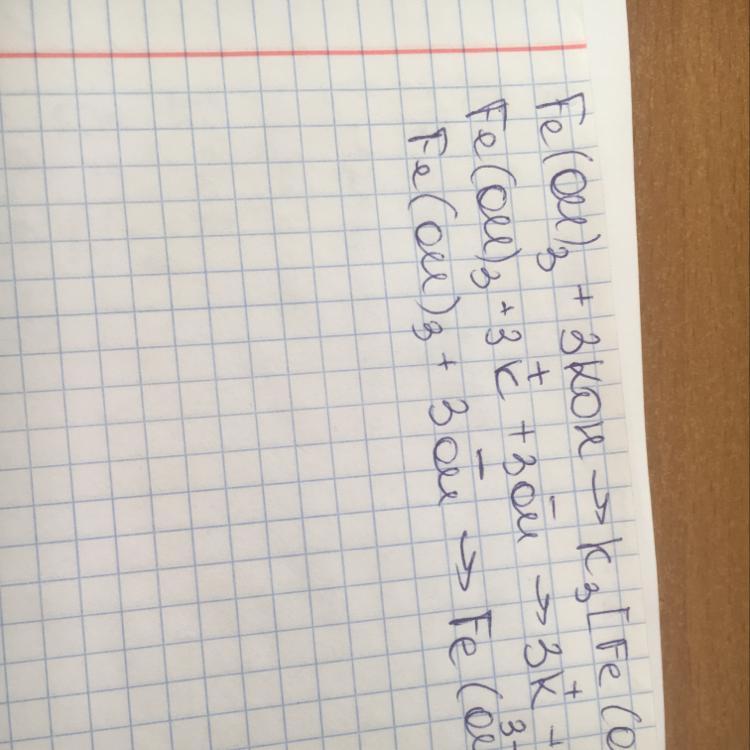 Fe(OH)₃ + 3KOH → K₃[Fe(O
Fe(OH)₃ + 3K⁺ + 3OH⁻ → 3K⁺ +
Fe(OH)₃ + 3OH⁻ → Fe(OH 3-